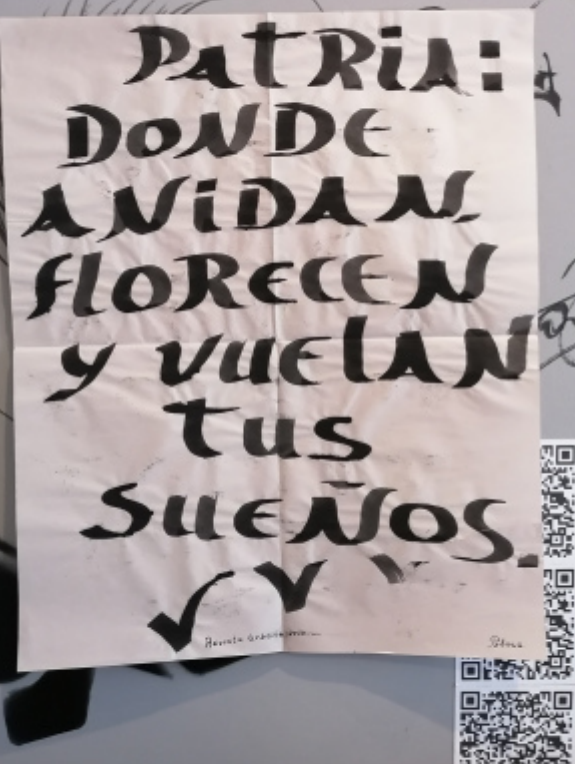 PATRIA:
DONDE
ANIDAN,
FLORECEN
Y VUELAN
tus
SUEÑOS.